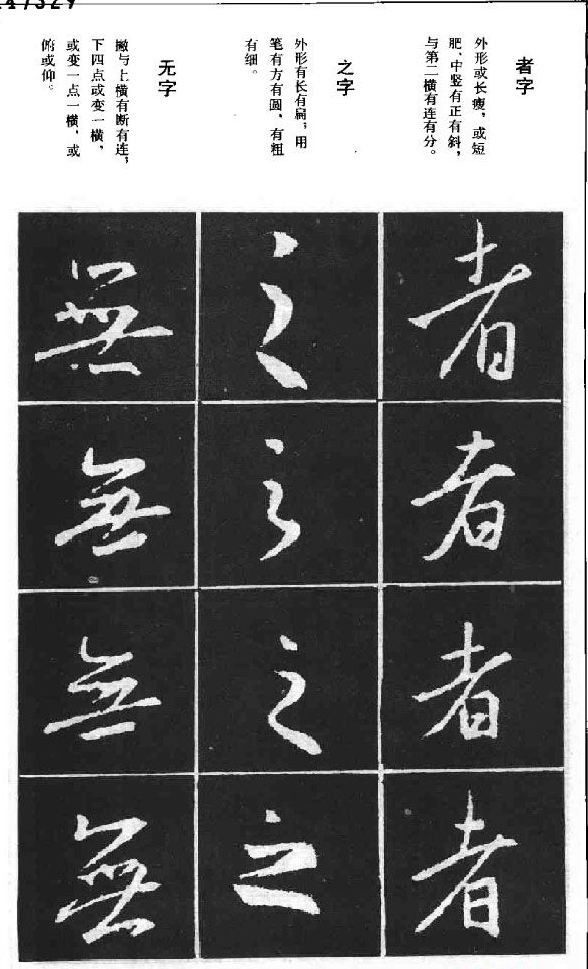 者字
外形或长瘦，或短
肥、中竖有正有斜，
与第二横有连有分。
之字
外形有长有扁，用
笔有方有圆，有粗
有细。
无字
撇与上横有断有连，
下四点或变一横，
或变一点一横，或
俯或仰。
者
者
者
者
之
之
之
之
無
無
無
無